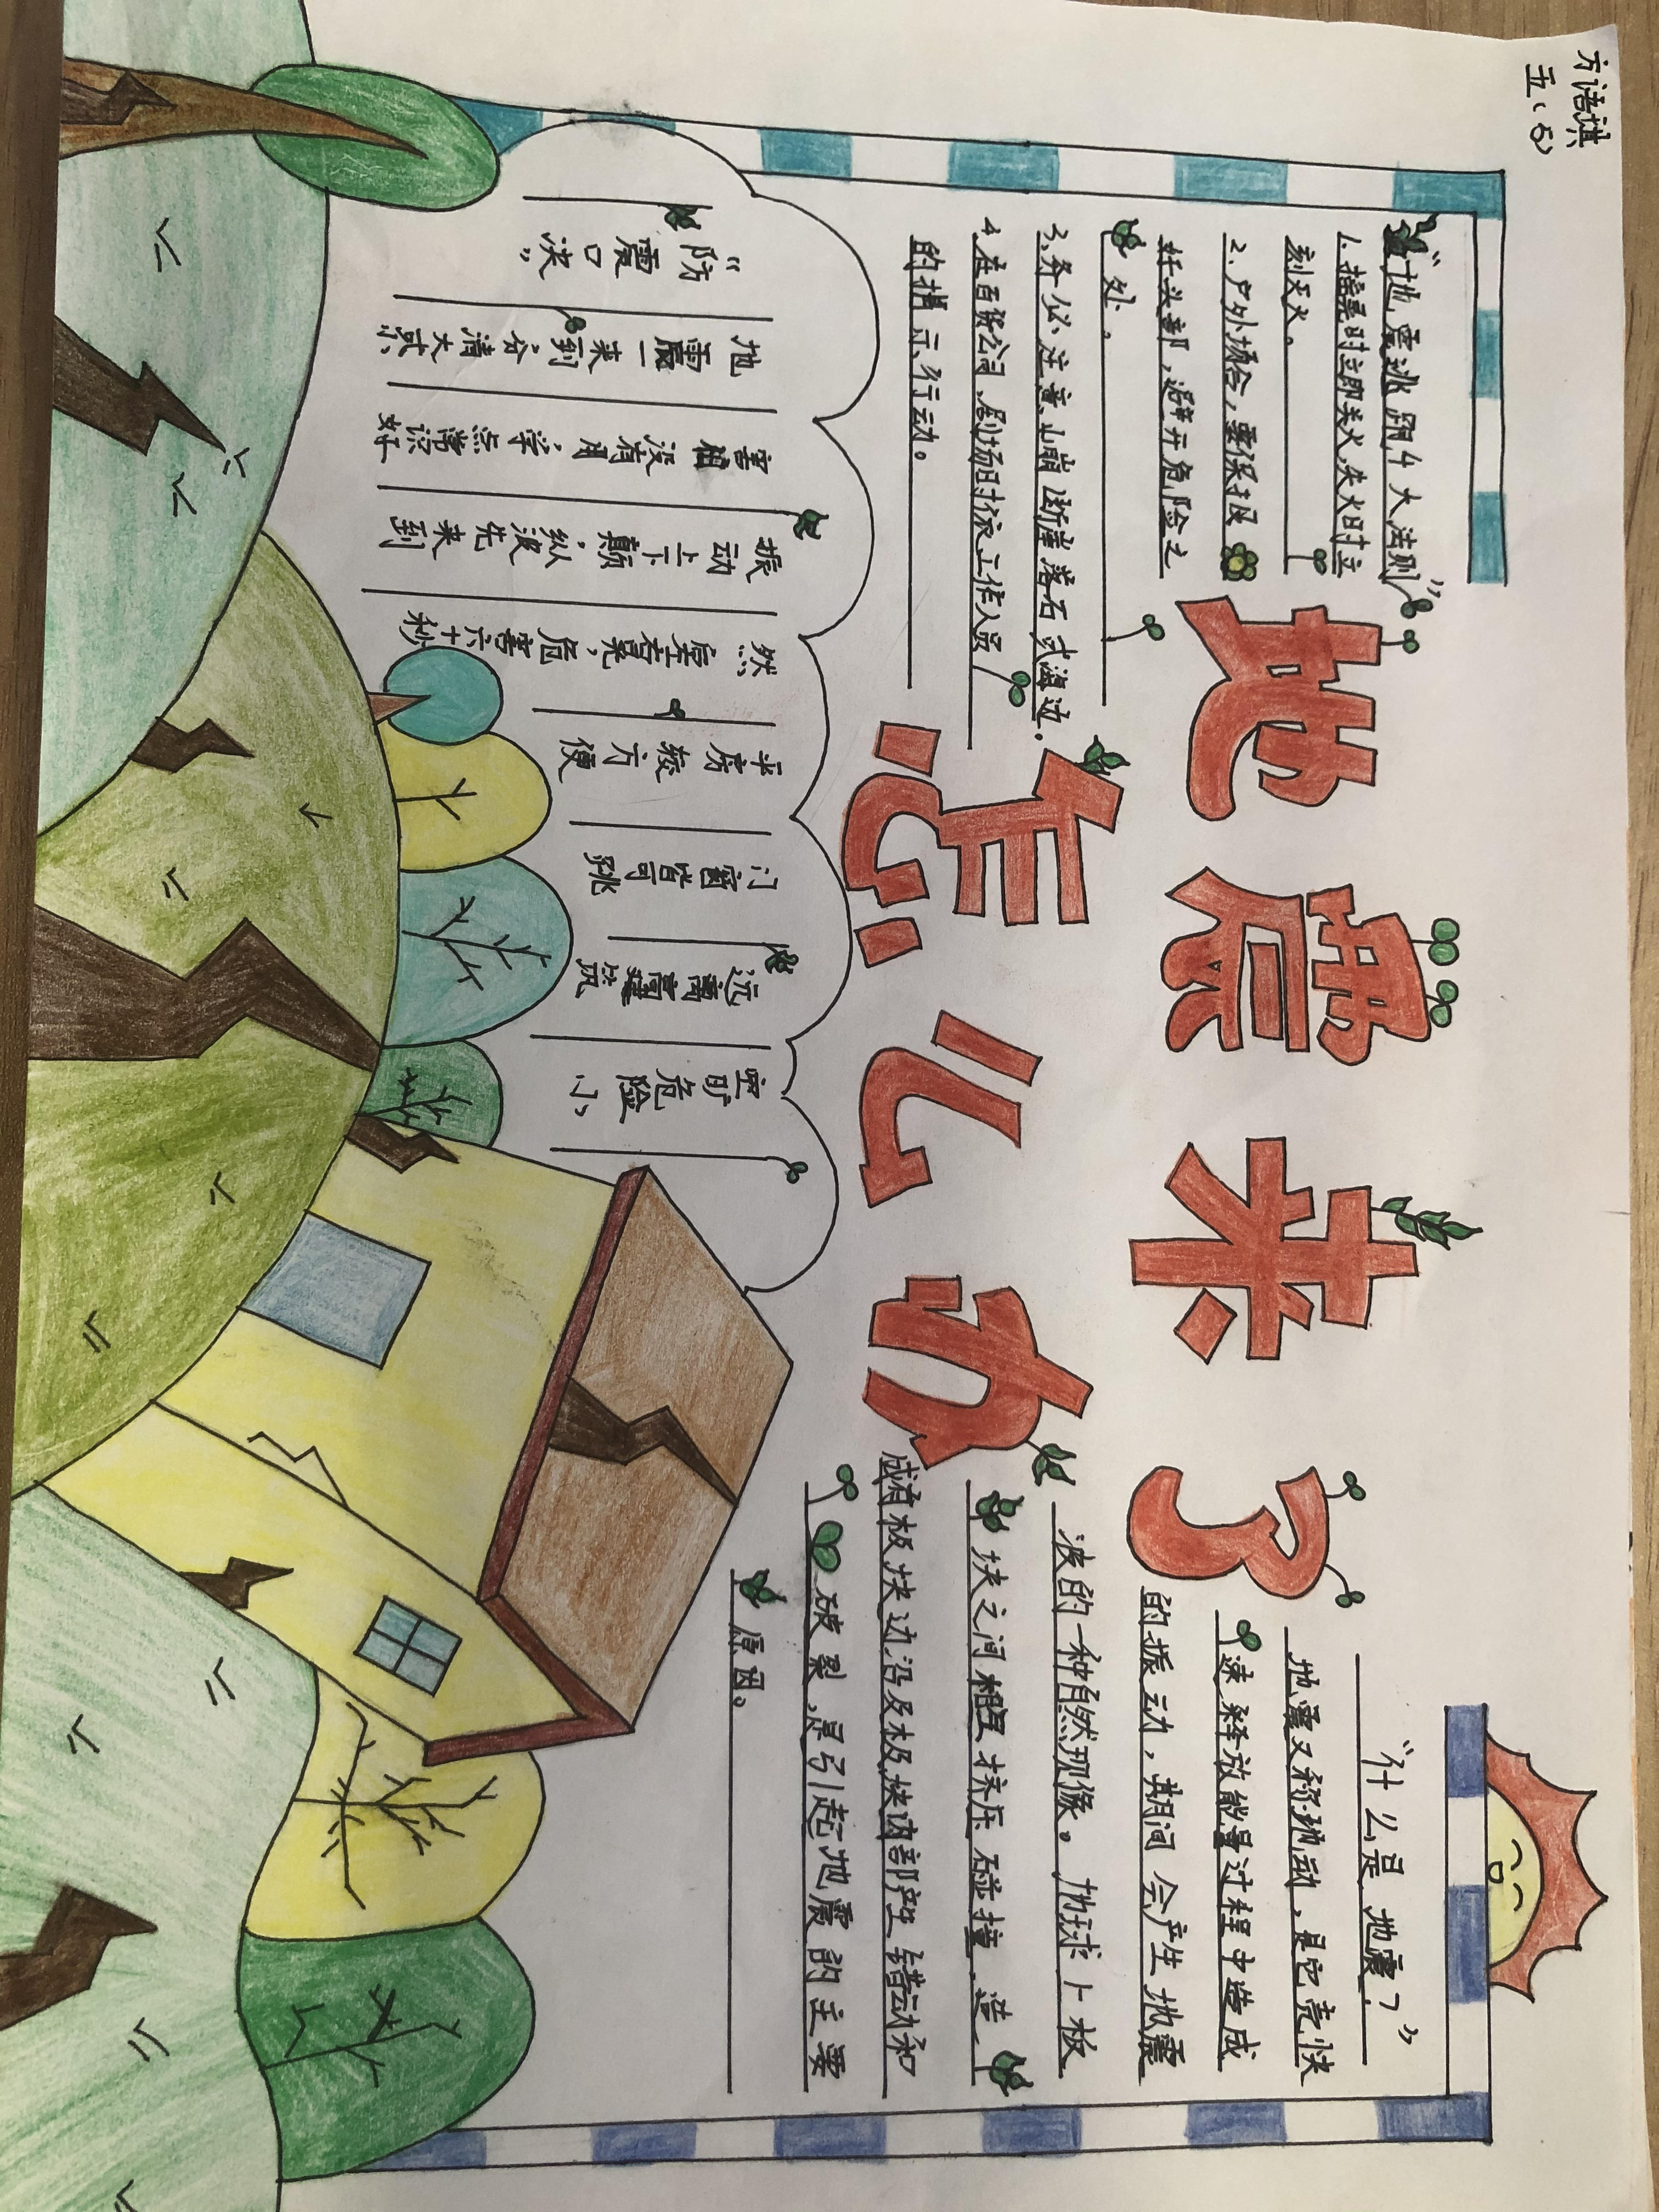 方语祺
五(5)
地震来了
怎么办
“地震逃跑4大法则”
1.摇晃时立即关火,失火时立
刻灭火。
2.户外场合,要保护
好头部,避开危险之
处。
3.务必注意山崩断崖落石或海边.
4.在百货公司、剧场时依工作人员
的指示行动。
“什么是地震?”
地震又称地动,是它壳快
速释放能量过程中造成
的振动,期间会产生地震
波的一种自然现像。地球上板
块之间相互挤压碰撞,造
成有板块边沿及板块内部产生错动和
破裂,是引起地震的主要
原因。
“防震口决”
地震一来到,分清大或小
害怕没有用,学点常识好
振动上下颠,纵波先来到
然后左右晃,危害六十秒
平房较方便
门窗皆可跳
远离高建筑
空旷危险小